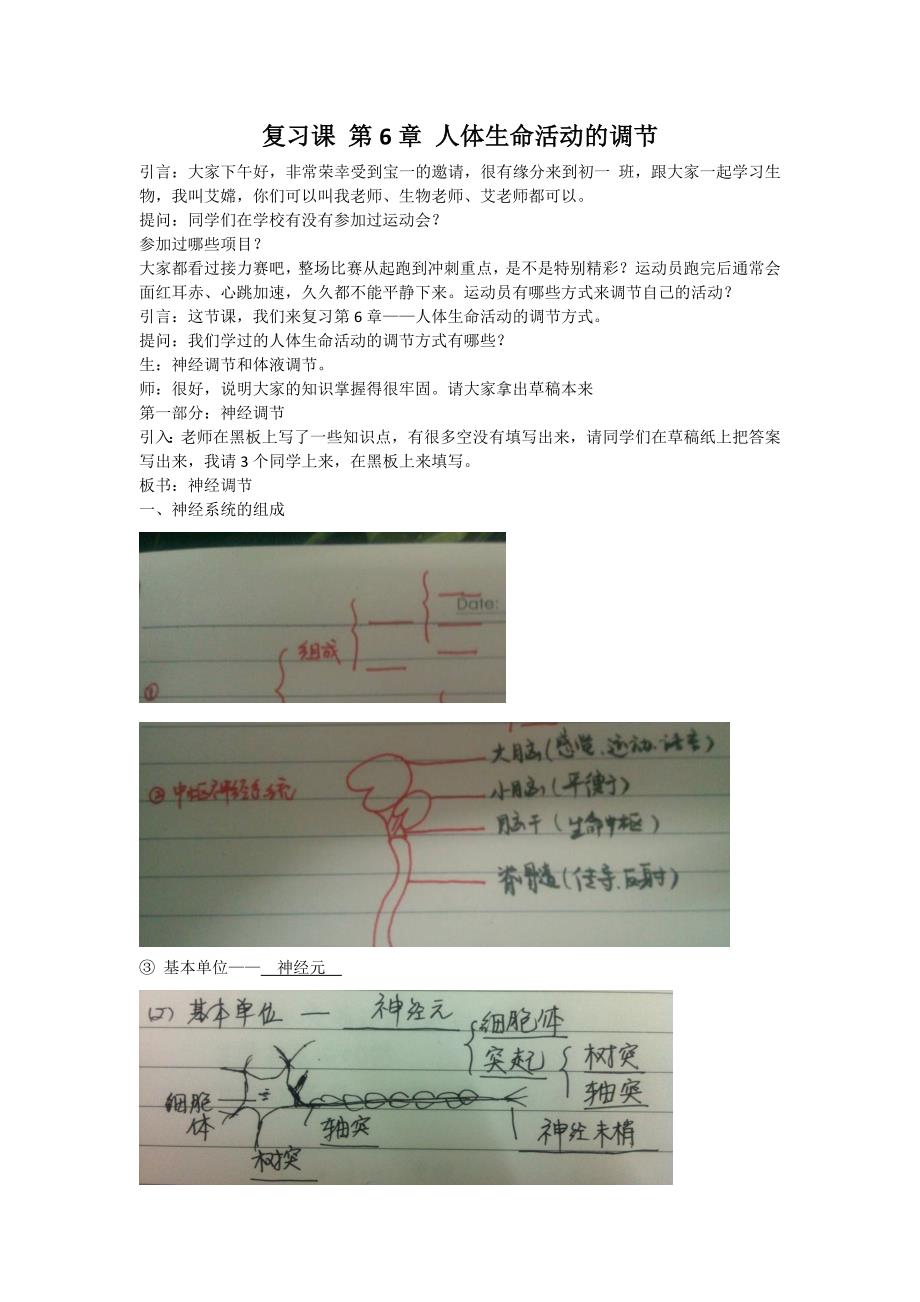 复习课 第6章 人体生命活动的调节
引言：大家下午好，非常荣幸受到宝一的邀请，很有缘分来到初一 班，跟大家一起学习生
物，我叫艾嫦，你们可以叫我老师、生物老师、艾老师都可以。
提问：同学们在学校有没有参加过运动会？
参加过哪些项目？
大家都看过接力赛吧，整场比赛从起跑到冲刺重点，是不是特别精彩？运动员跑完后通常会
面红耳赤、心跳加速，久久都不能平静下来。运动员有哪些方式来调节自己的活动？
引言：这节课，我们来复习第6章——人体生命活动的调节方式。
提问：我们学过的人体生命活动的调节方式有哪些？
生：神经调节和体液调节。
师：很好，说明大家的知识掌握得很牢固。请大家拿出草稿本来
第一部分：神经调节
引入：老师在黑板上写了一些知识点，有很多空没有填写出来，请同学们在草稿纸上把答案
写出来，我请3个同学上来，在黑板上来填写。
板书：神经调节
一、神经系统的组成
Date:
组成
①
大脑（感觉、运动、语言）
②中枢神经系统
小脑（平衡）
脑干（生命中枢）
脊髓（传导、反射）
③ 基本单位—— 神经元
(2) 基本单位 — 神经元
细胞体
突起
树突
轴突
细胞
体
轴突
神经末梢
树突